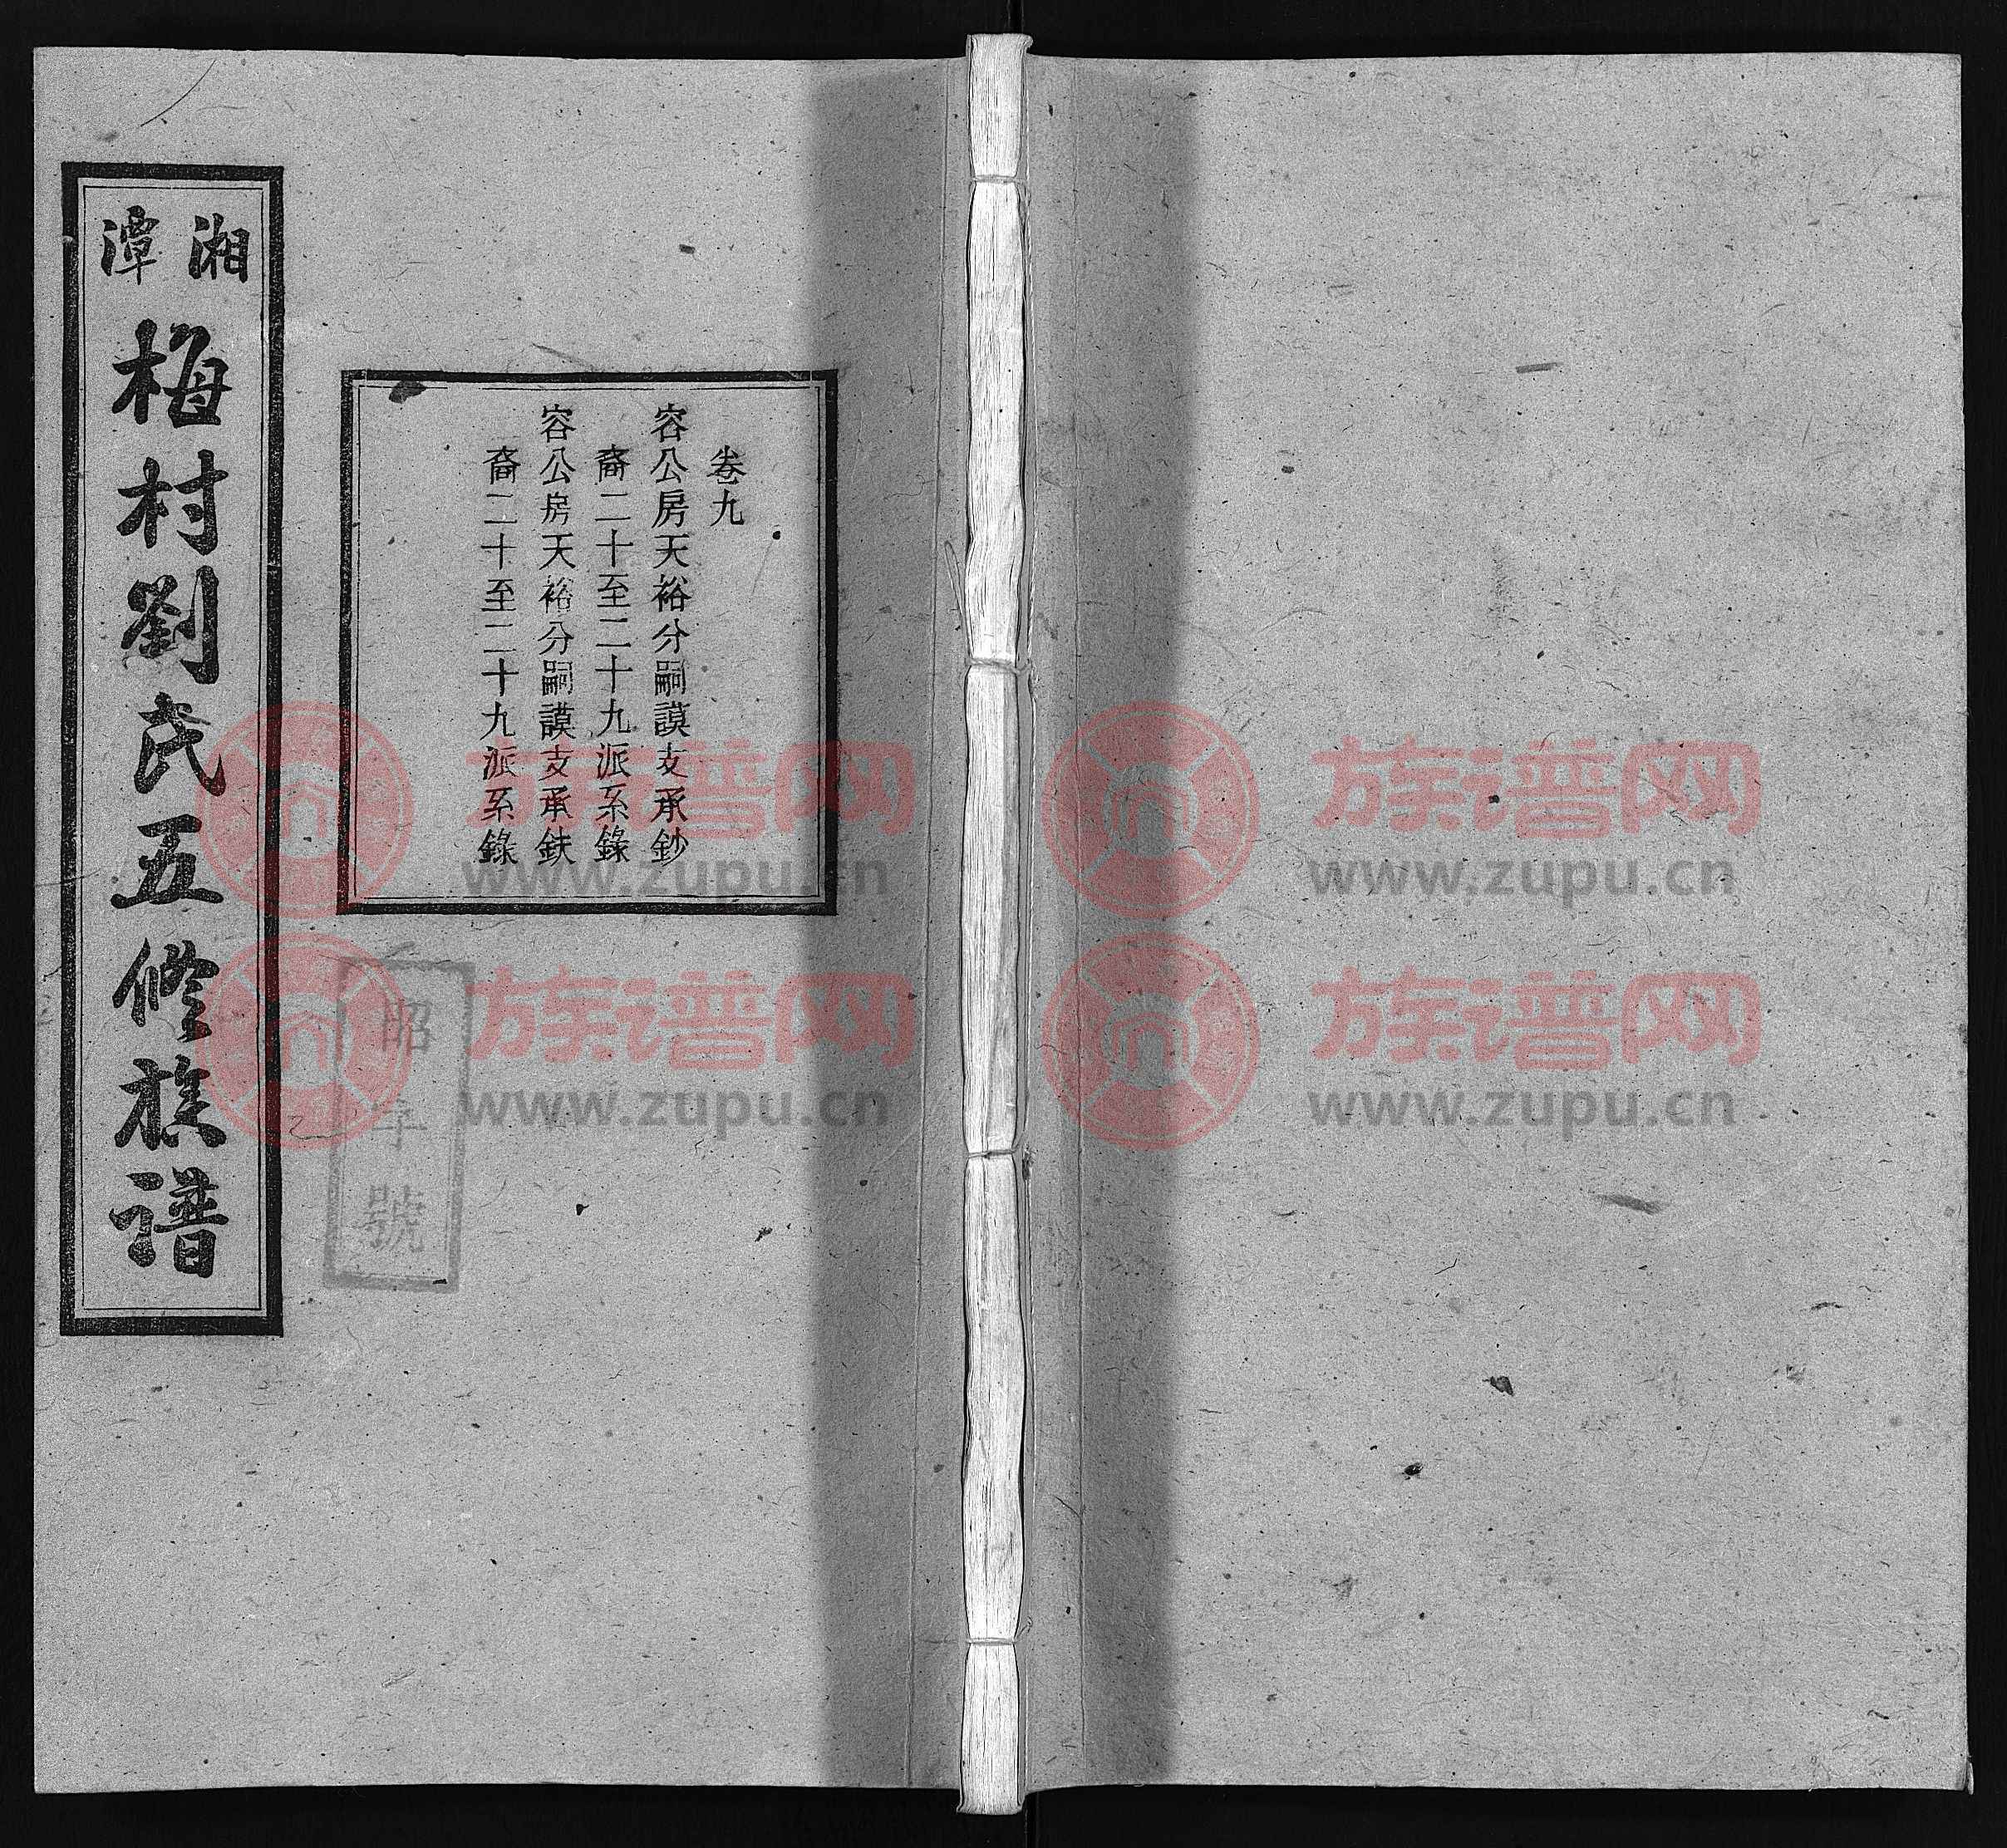 湘潭
梅村劉氏五修族譜
卷九
容公房天裕分嗣謨支承鈔
裔二十至二十九派系錄
容公房天裕分嗣謨支承鈇
裔二十至二十九派系錄
昭字號
族谱网
www.zupu.cn
族谱网
www.zupu.cn
族谱网
www.zupu.cn
族谱网
www.zupu.cn